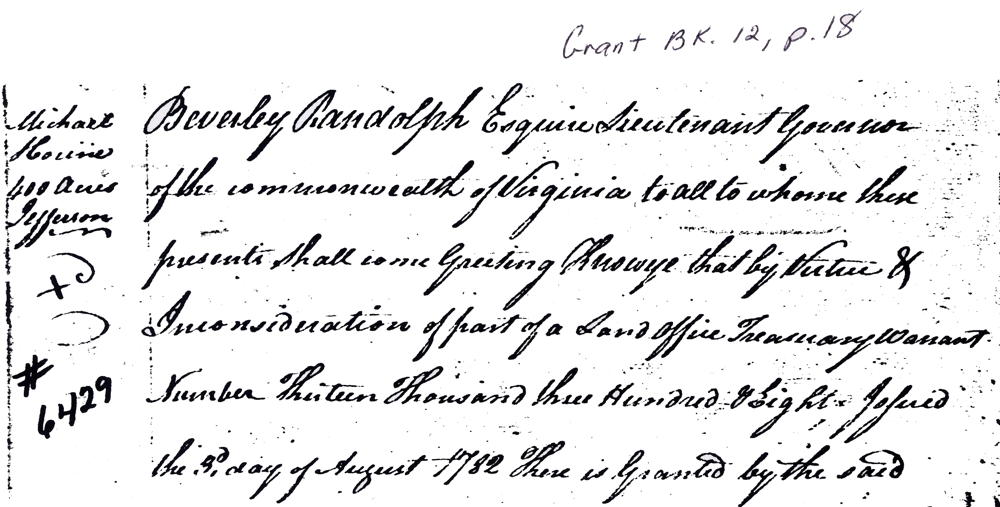 Grant BK. 12, p. 18
Michael
Horine
400 Acres
Jefferson
#
6429
Beverley Randolph Esquire Lieutenant Governor
of the commonwealth of Virginia to all to whome these
presents shall come Greeting Know ye that by Virtue &
Inconsideration of part of a Land Office Treasury Warrant
Number Thirteen Thousand three Hundred & Eight - Issued
the 3d day of August 1782 There is Granted by the said